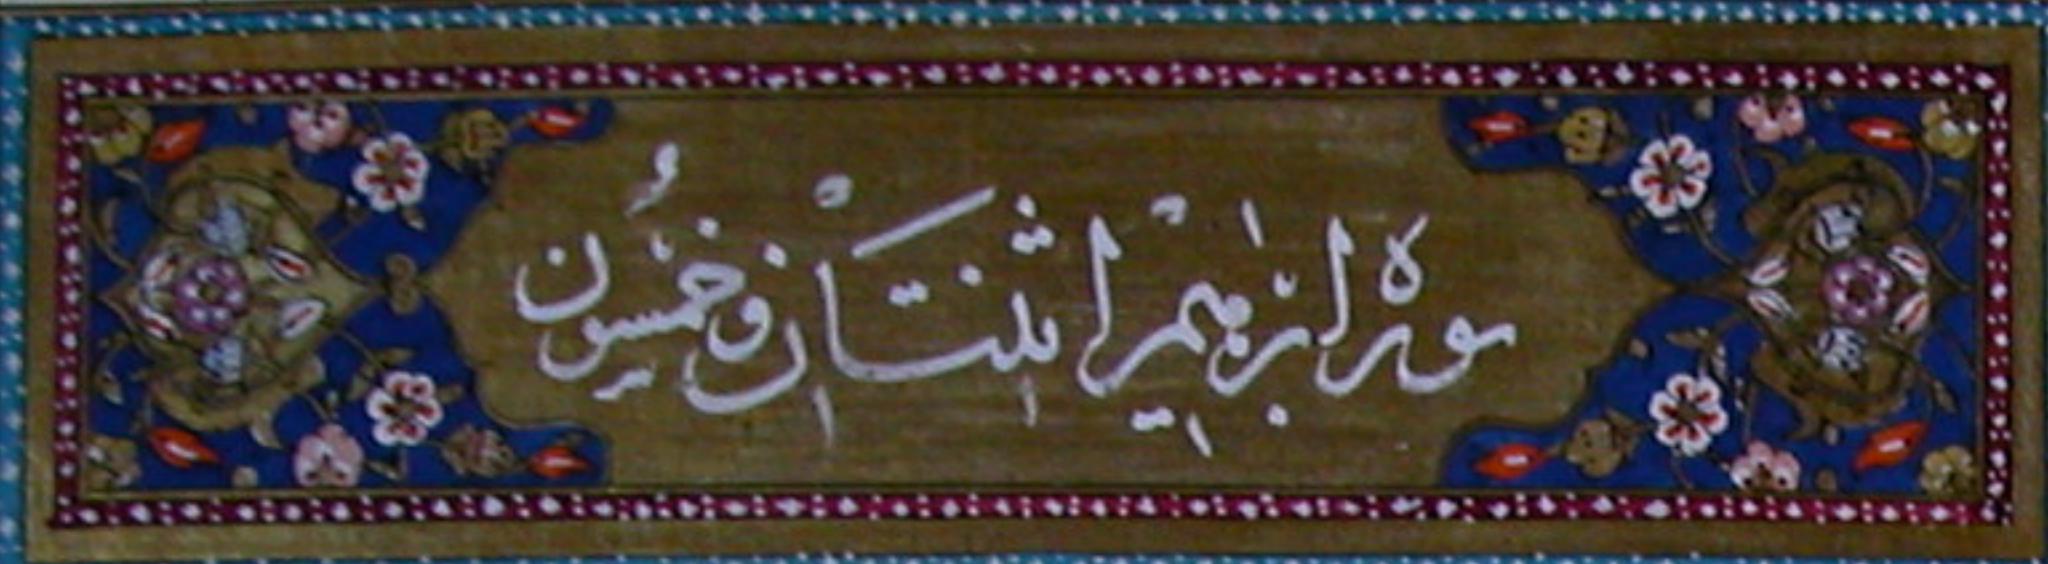 سورة إبرٰهيم اثنتان وخمسون